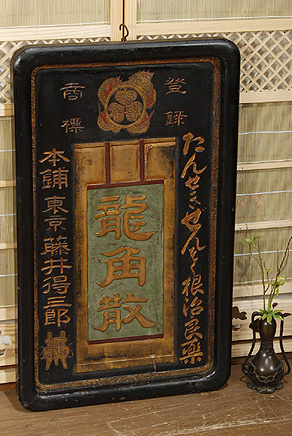 登録
商標
たんせきせんそく根治良薬
龍角散
本舗東京藤井得三郎